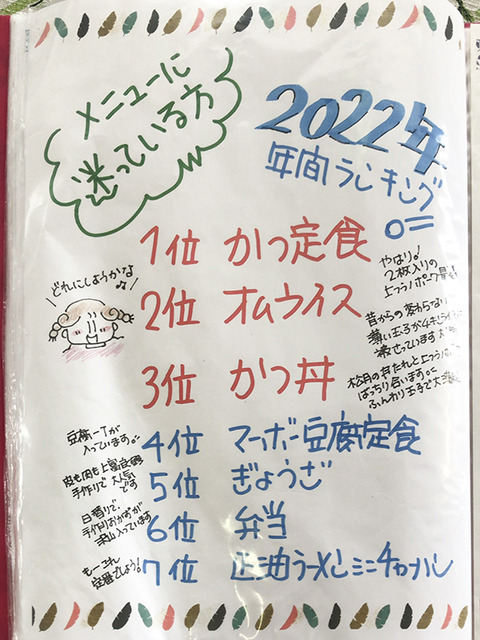 メニューに
迷っている方
2022年
年間ランキング
1位 かつ定食
やはり！
2枚入りの
上ロースポーク
どれにしようかな♪
2位 オムライス
昔からの変わらない
薄い玉子が
3位 かつ丼
松月の丼たれと
ばっちり合います。
ふんわり玉子で
豆腐一丁が
入っています。
4位 マーボー豆腐定食
手作りで大人気
です
5位 ぎょうざ
日替りで、
手作りおかずが
沢山入っています
6位 弁当
もーこれ
定番でしょう！
7位 正油ラーメンミニチャーハン